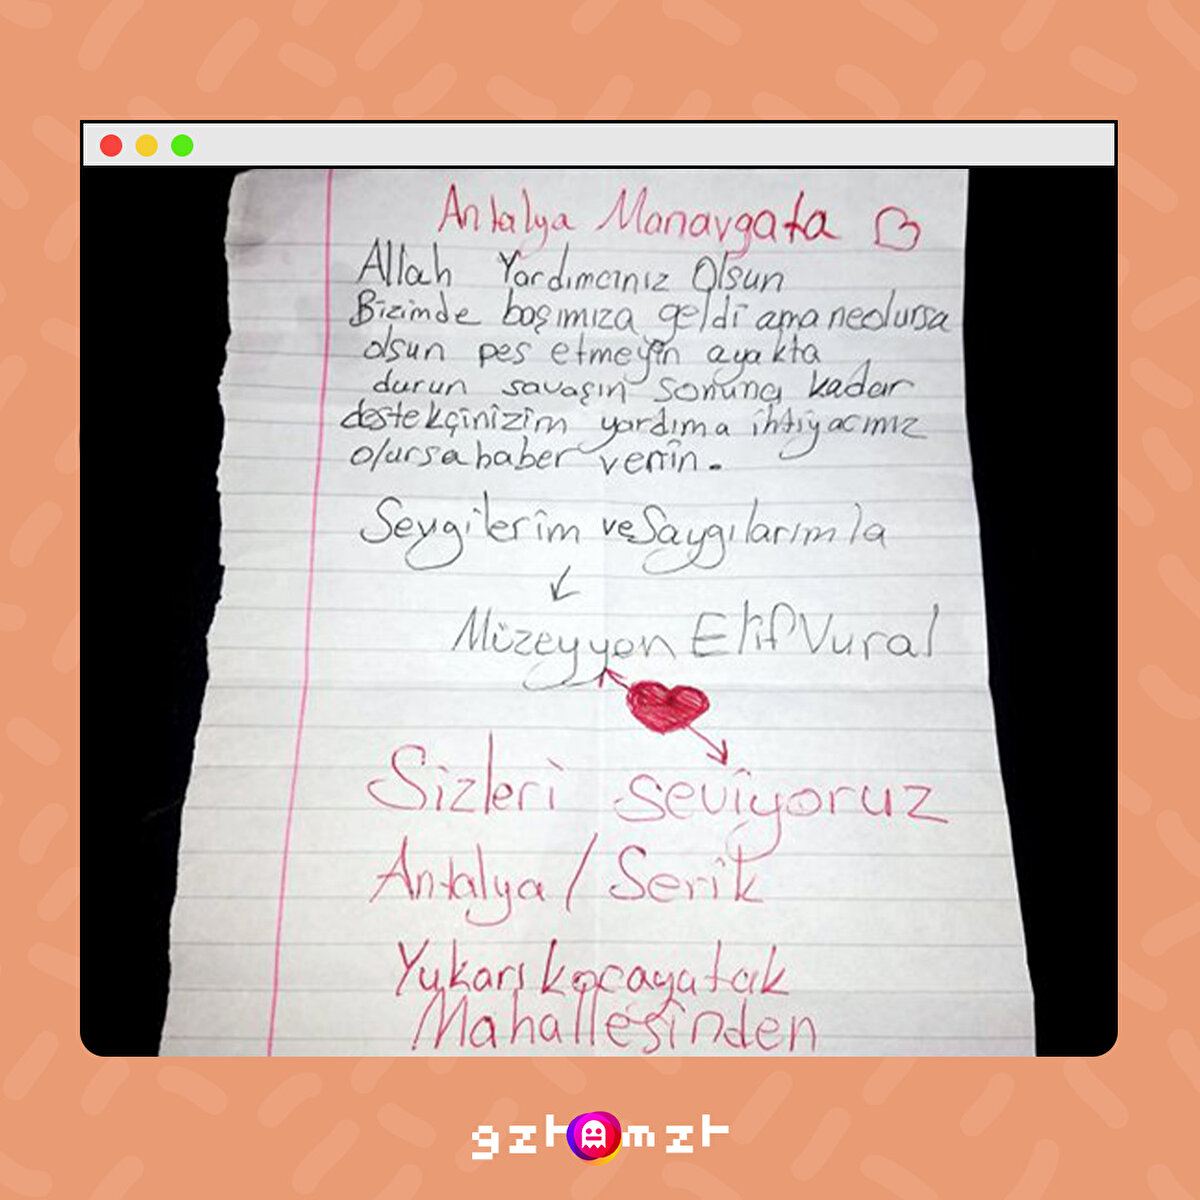 Antalya Manavgata
Allah Yardımcınız Olsun
Bizimde başımıza geldi ama neolursa
olsun pes etmeyin ayakta
durun savaşın sonuna kadar
destekçinizim yardıma ihtiyacınız
olursa haber verin.
Sevgilerim ve Saygılarımla
Müzeyyen Elif Vural
Sizleri seviyoruz
Antalya / Serik
Yukarı kocayatak
Mahallesinden
gzt mzt